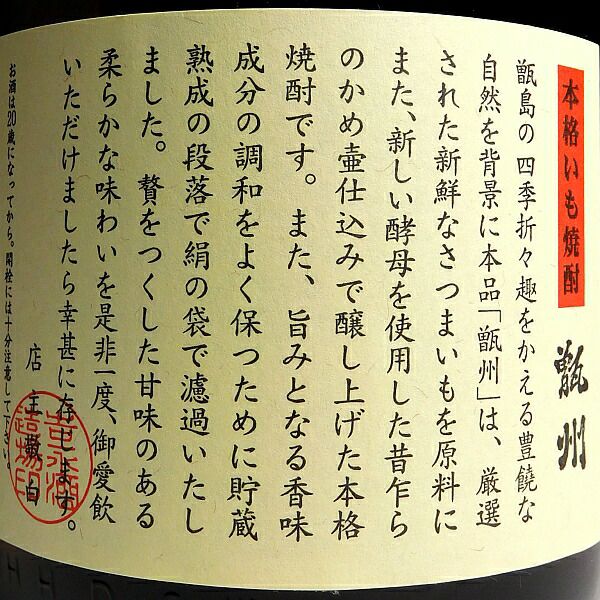 本格いも焼酎
甑州
甑島の四季折々趣をかえる豊饒な
自然を背景に本品「甑州」は、厳選
された新鮮なさつまいもを原料に
また、新しい酵母を使用した昔乍ら
のかめ壷仕込みで醸し上げた本格
焼酎です。また、旨みとなる香味
成分の調和をよく保つために貯蔵
熟成の段落で絹の袋で濾過いたし
ました。贅をつくした甘味のある
柔らかな味わいを是非一度、御愛飲
いただけましたら幸甚に存じます。
店主敬白
吉永酒造場印
お酒は20歳になってから。開栓には十分注意して下さい。